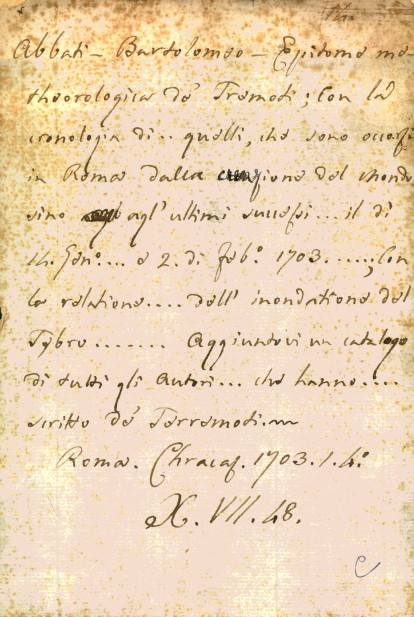 Abbati - Bartolomeo - Epitome me-
theorologica de' Tremoti; Con la
cronologia di.. quelli, che sono occorsi
in Roma dalla creazione del mondo
sino agl'ultimi successi... il dì
14. Gen.º... e 2. di feb.º 1703......; Con
la relatione.... dell' inondatione del
Tybro....... Aggiuntovi un catalogo
di tutti gli autori... che hanno....
scritto de' Terremoti.
Roma. Chracas. 1703. 1. 4.º
X. VII. 48.
C